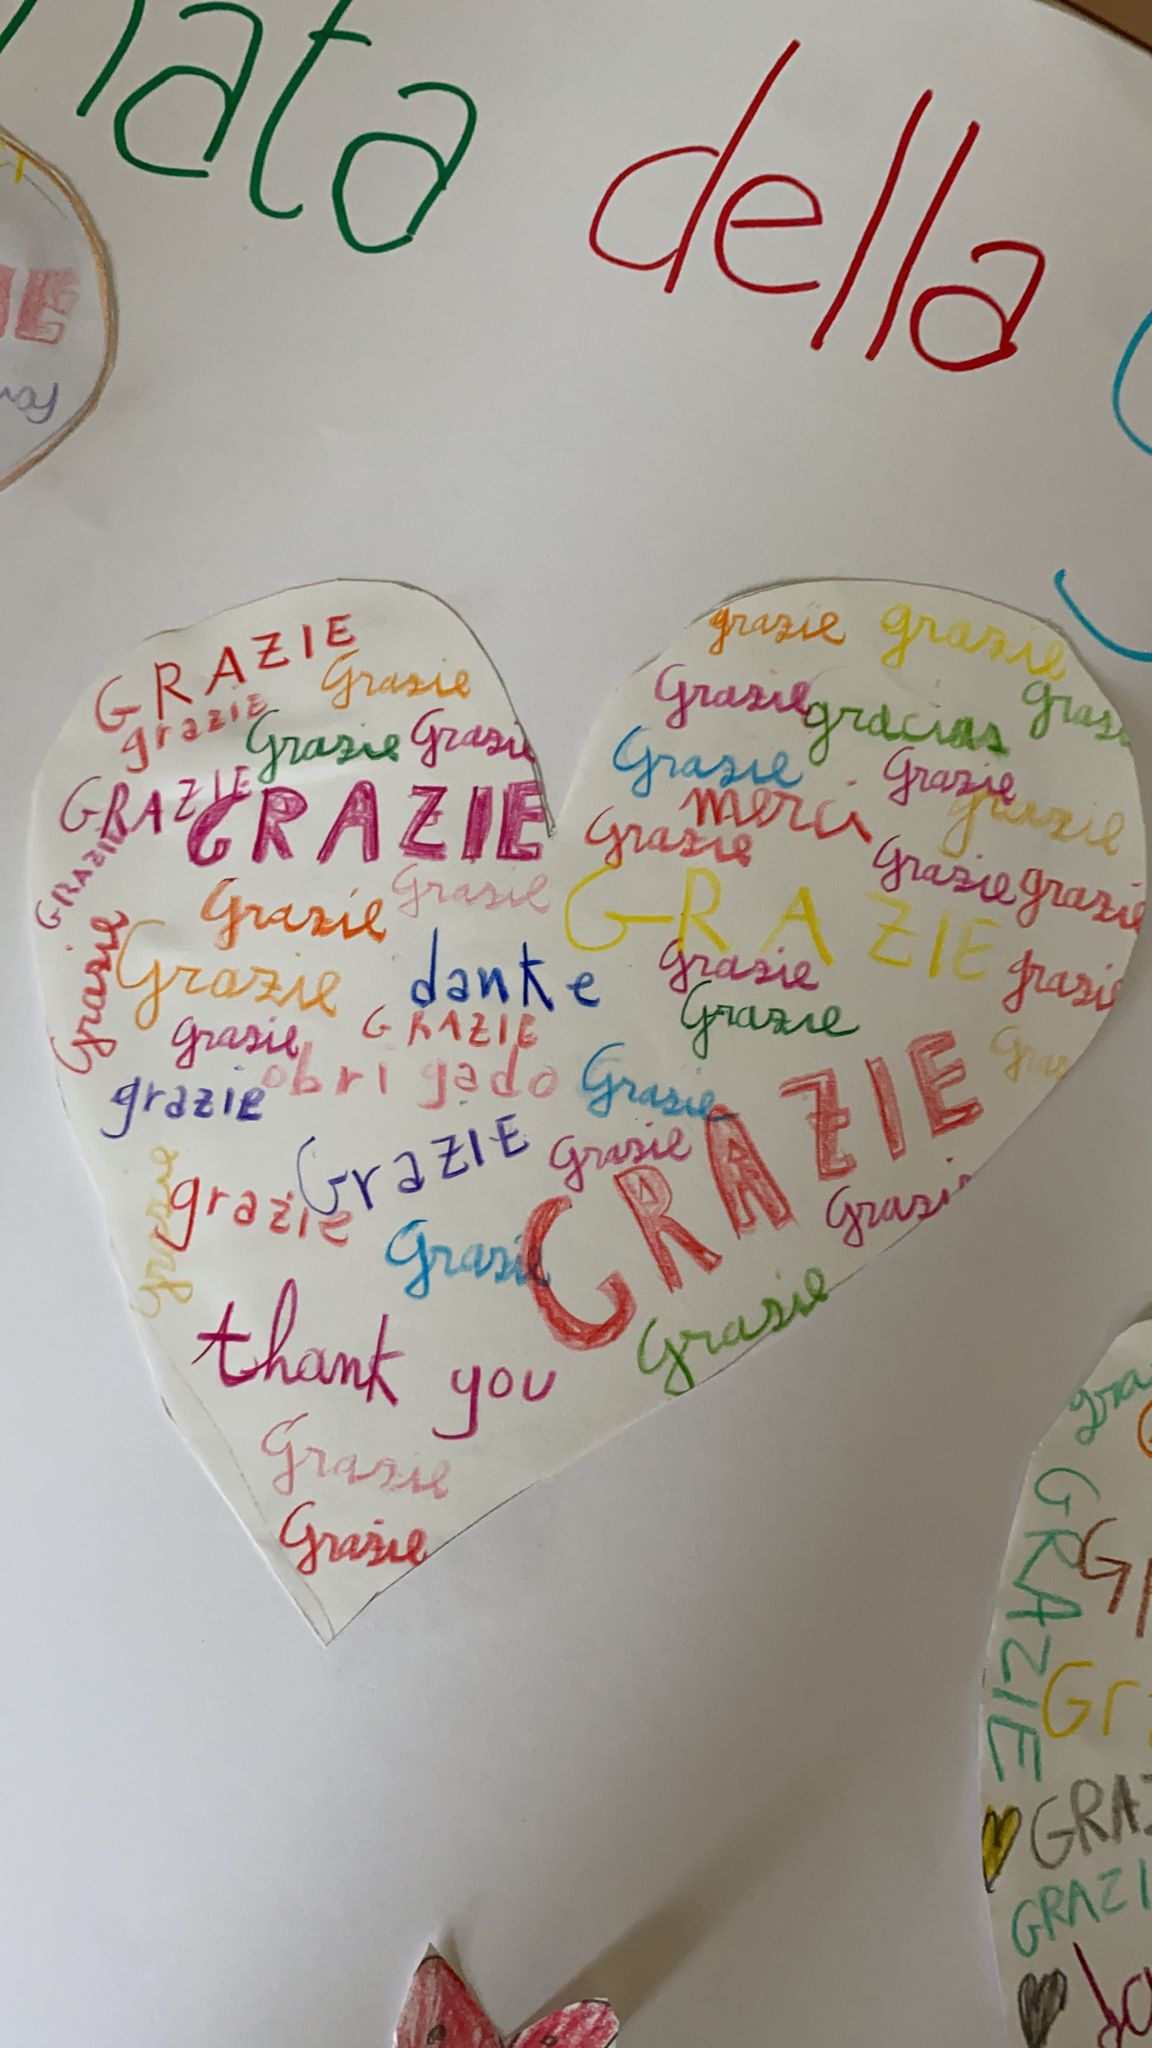 della
GRAZIE
grazie
Grazie
Grazie
Grazie
GRAZIE
GRAZIE
GRAZIE
Grazie
Grazie
Grazie
Grazie
danke
grazie
GRAZIE
obrigado
grazie
Grazie
grazie
grazie
thank you
Grazie
Grazie
Grazie
grazie
grazie
Grazie
gracias
Grazie
Grazie
merci
grazie
Grazie
Grazie
grazie
GRAZIE
grazie
Grazie
grazie
Grazie
Grazie
GRAZIE
Grazie
Grazie
GRAZIE